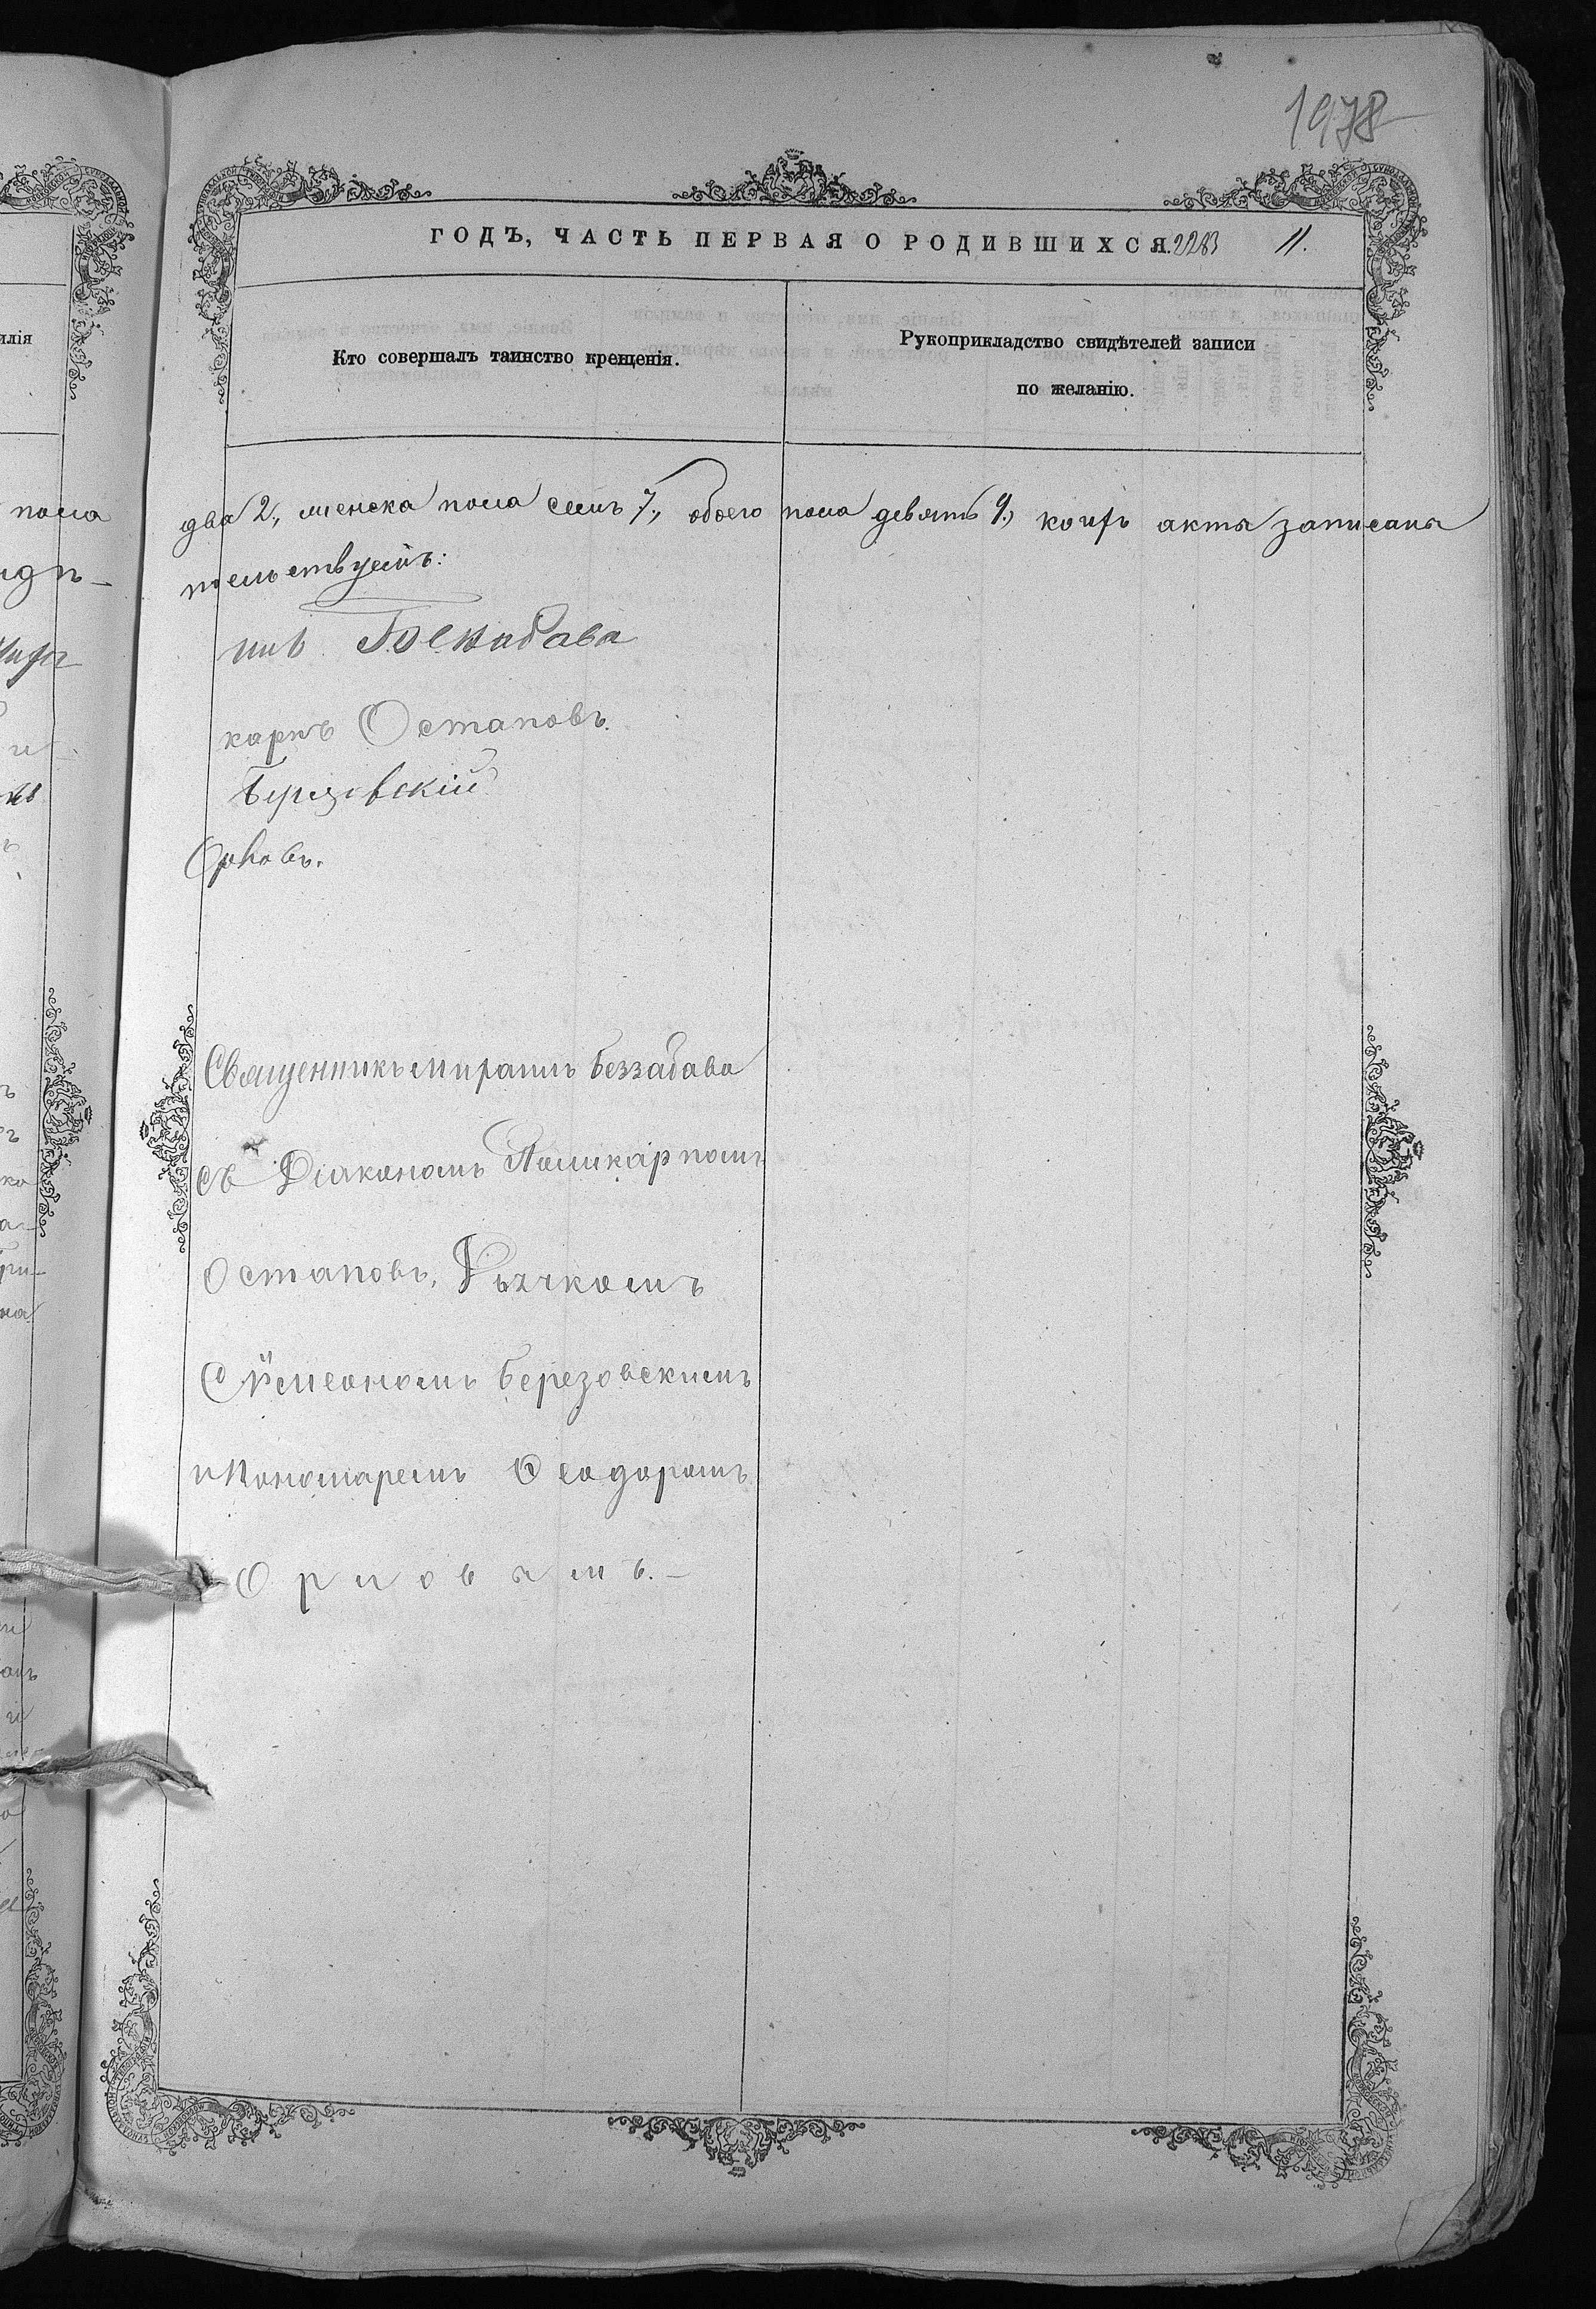 1978
ГОДЪ, ЧАСТЬ ПЕРВАЯ О РОДИВШИХСЯ. 2283 11.
Кто совершалъ таинство крещенія.
Рукоприкладство свидѣтелей записи
по желанію.
два 2., женска пола семь 7., обоего пола девять 9., коихъ акты записаны
тельствуемъ:
карпъ Остаповъ.
Березовскій
Орловъ.
Священникъ Миѳаилъ Беззабава
съ Діякономъ Поликарпомъ
Остаповъ, Дьячкомъ
Сѵмеономъ Березовскимъ
и Пономаремъ Ѳеодоромъ
Орловымъ.—
илія
пола